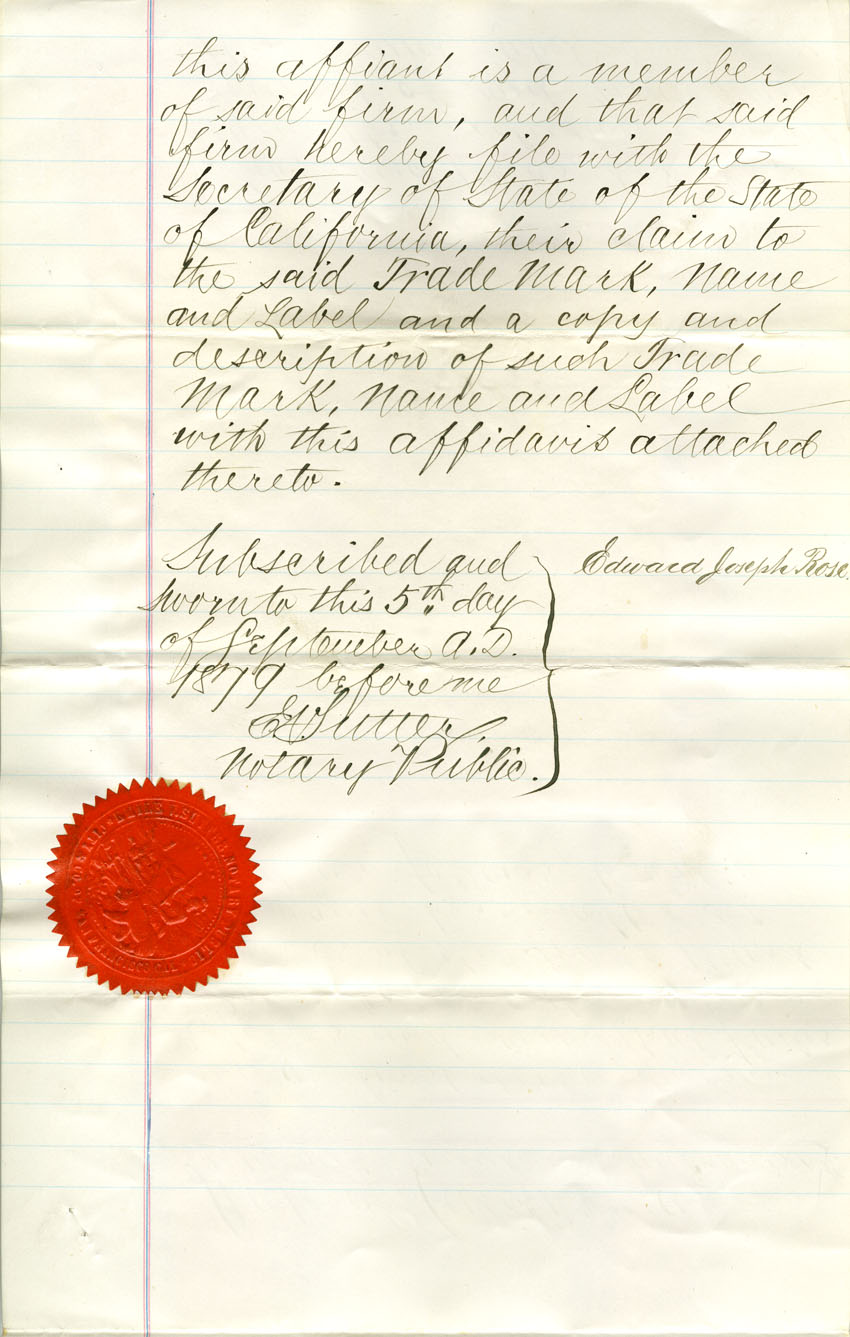 this affiant is a member
of said firm, and that said
firm hereby file with the
Secretary of State of the State
of California, their claim to
the said Trade Mark, Name
and Label and a copy and
description of such Trade
Mark, Name and Label
with this affidavit attached
thereto.
Subscribed and
sworn to this 5th day
of September A.D.
1879 before me
Sutter,
Notary Public.
Edward Joseph Rose.
NOTARY PUBLIC